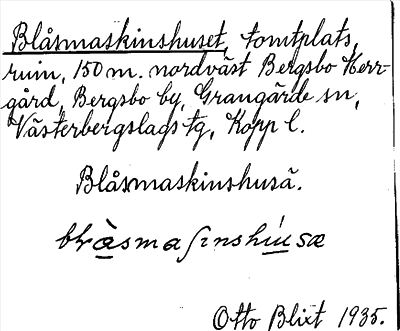 Blåsmaskinshuset, tomtplats,
ruin, 150 m. nordväst Bergsbo Herr-
gård, Bergsbo by, Grangärde sn,
Västerbergslags tg, Kopp l.
Blåsmaskinshusä.
blråsmaʃinshúsæ
Otto Blixt 1935.